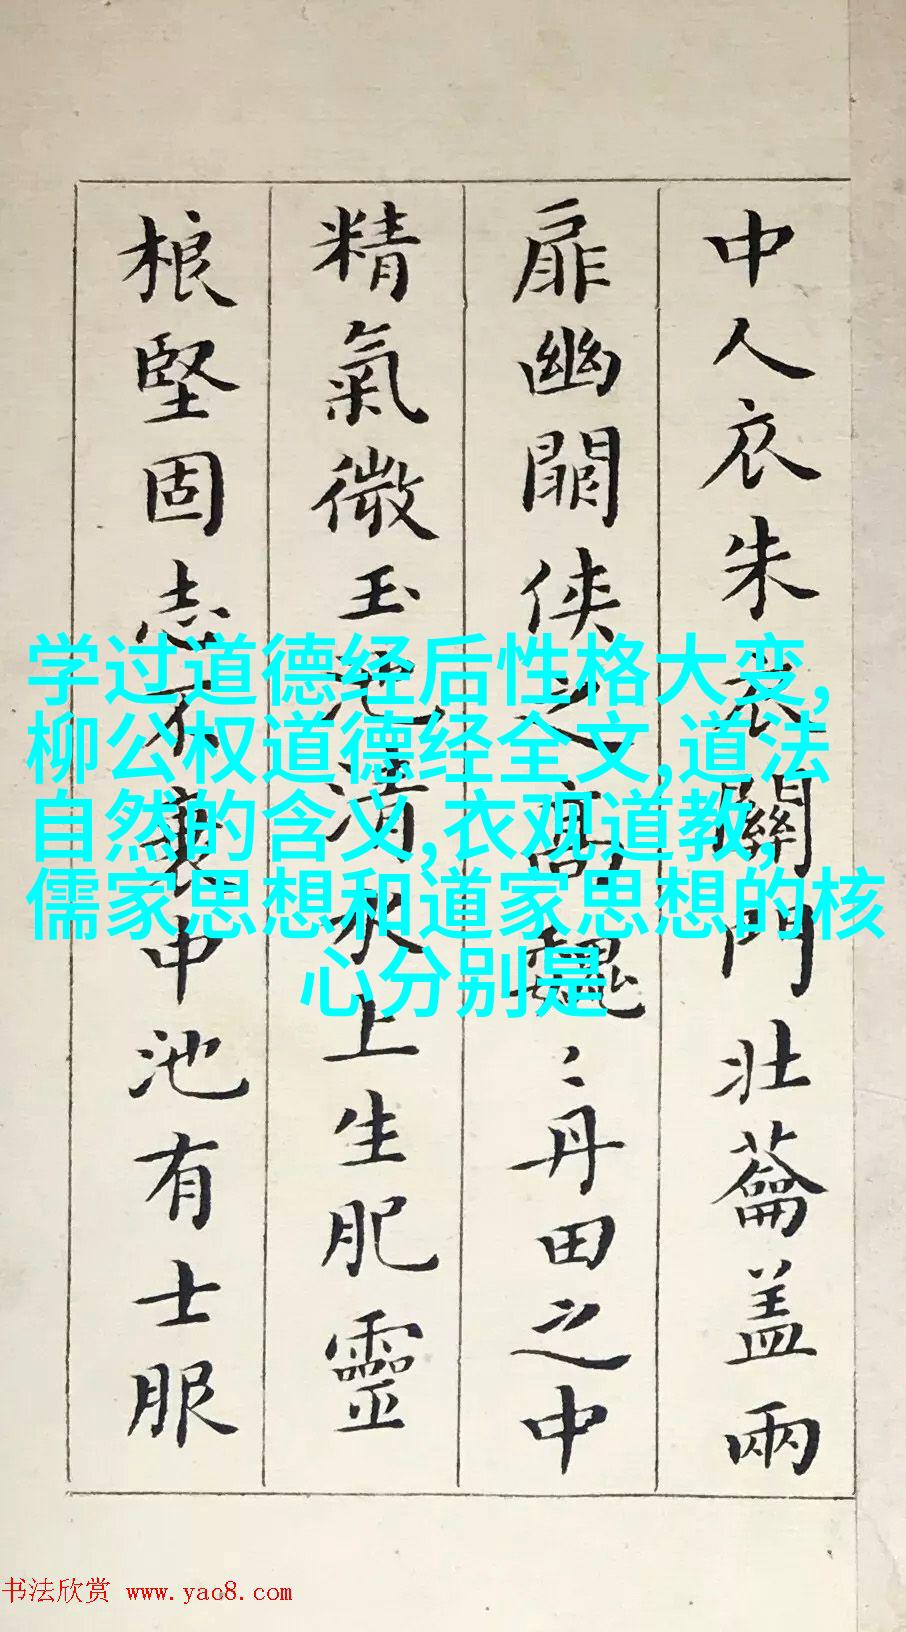 中人衣朱衣關門壯蘥盖兩
扉幽闗侠之髙魏〻丹田之中
精氣微玉池清水上生肥靈
根堅固志不衰中池有士服
学过道德经后性格大变,
柳公权道德经全文,道法
自然的含义,衣观道教,
儒家思想和道家思想的核
心分别是
书法欣赏 www.yac8.com